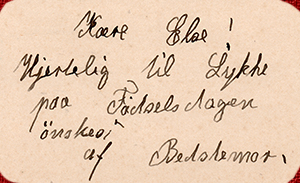 Kære Else!
Hjertelig til Lykke
paa Fødselsdagen
ønskes
af Bedstemor.